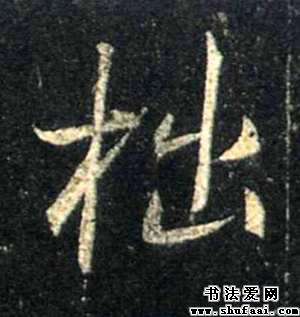 柮
书法爱网
www.shufaai.com